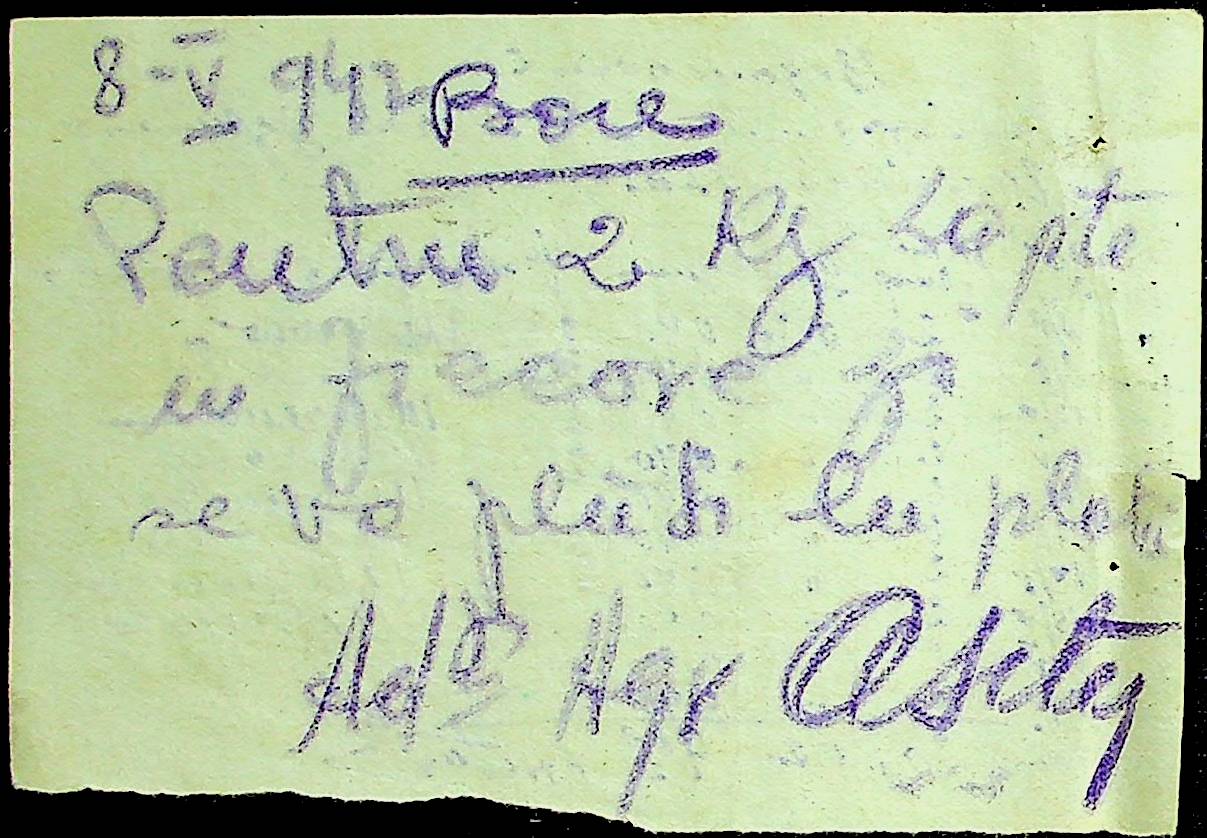 8-V 942 Bon
Pentru 2 Kg Lapte
in fiecare zi
se va plati lu plata
Ad. Agr